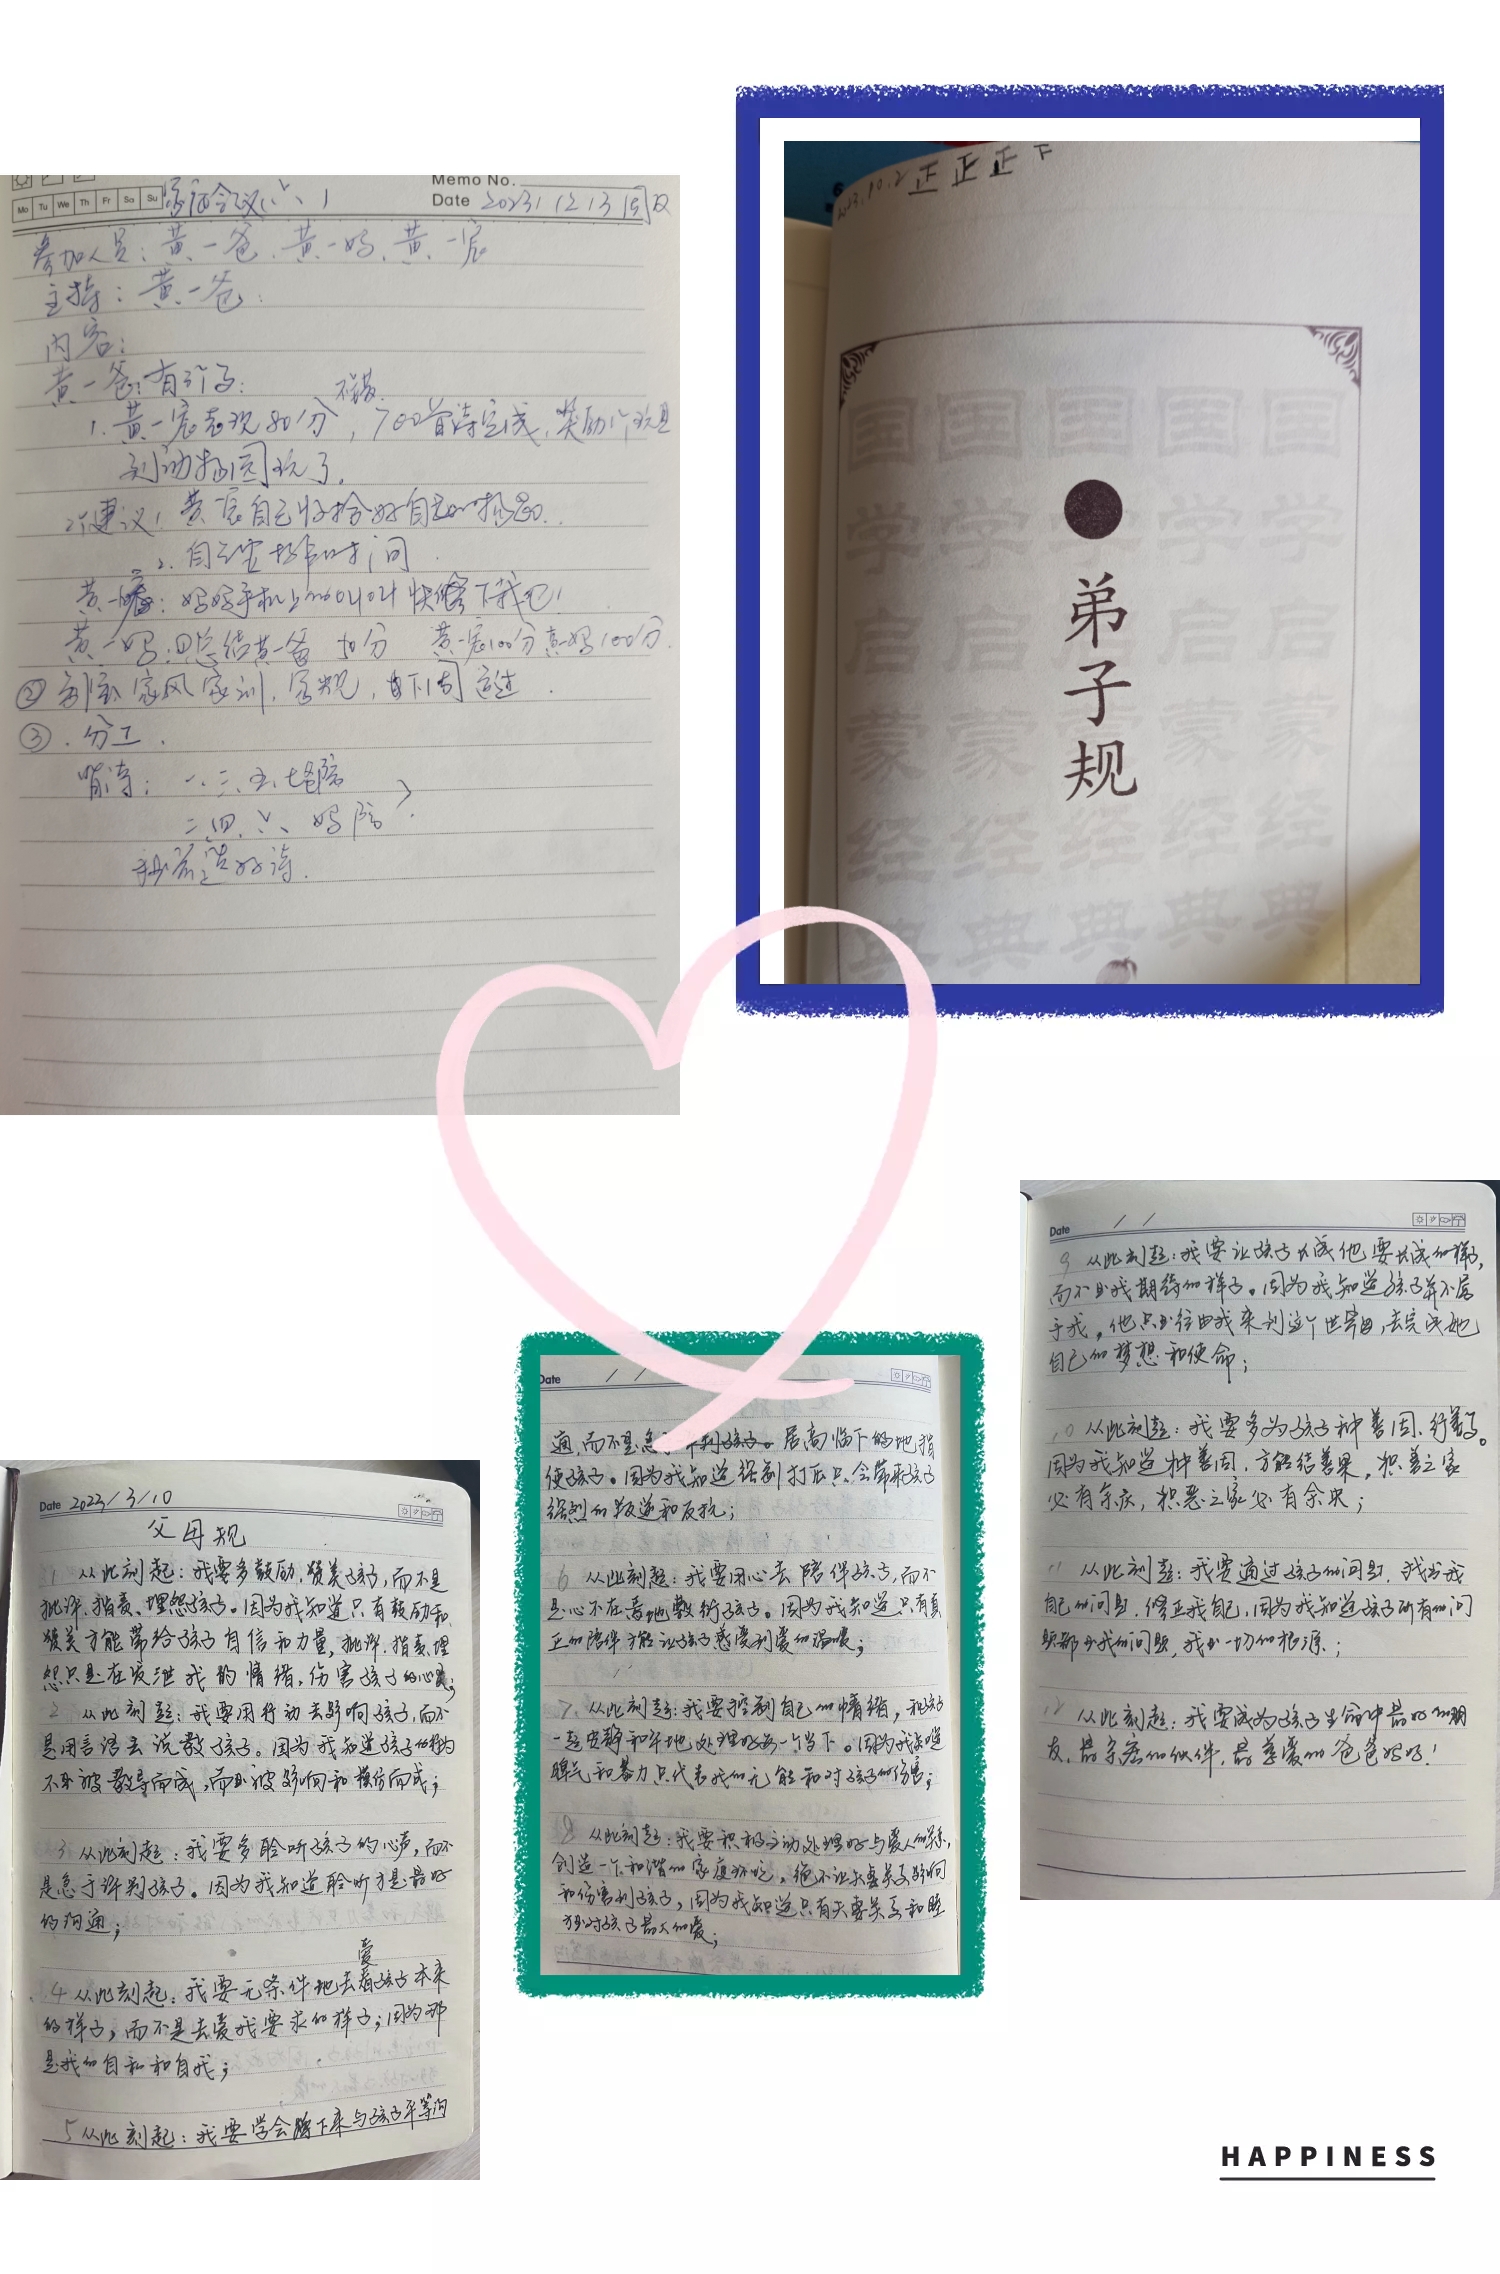 Memo No.
Mo Tu We Th Fr Sa Su 家庭会议
Date 2023 12 13
参加人员：黄一爸、黄一妈、黄一宸
主持：黄一爸
内容：
黄一爸：有
不错
1. 黄一宸表现80分，700首诗完成，奖励1个玩具
到动物园玩了。
建议：黄宸自己收拾好自己的
2. 自己安排时间
妈妈手机上
黄一妈：总结黄一爸 50分 黄一宸100分 黄一妈100分
② 制定家风家训，下周
③. 分工.
背诗：一、三、五、七爸陪
二、四、六、妈陪
选好诗.
正 正 正 下
国 国 国 国 国
学 学 学 学 学
启 启 启 启
蒙 蒙 蒙 蒙 蒙
经 经 经 经 经
典 典 典 典 典
弟子规
Date 2023/3/10
父母规
1 从此刻起：我要多鼓励，赞美孩子，而不是
批评、指责、埋怨孩子。因为我知道只有鼓励和
赞美才能带给孩子自信和力量，批评、指责、埋
怨只是在发泄我的情绪，伤害孩子的心灵；
2 从此刻起：我要用行动去影响孩子，而不
是用言语去说教孩子。因为我知道孩子的行为
不是被教导而成，而是被影响和模仿而成；
3 从此刻起：我要多聆听孩子的心声，而不
是急于评判孩子。因为我知道聆听才是最好
的沟通；
爱
4 从此刻起：我要无条件地去孩子本来
的样子，而不是去爱我要求的样子；因为那
是我的自私和自我；
5 从此刻起：我要学会蹲下来与孩子平等沟
Date / /
通，而不是急于评判孩子。居高临下的地指
使孩子。因为我知道强制打压只会带来孩子
强烈的叛逆和反抗；
6 从此刻起：我要用心去陪伴孩子，而不
是心不在焉地敷衍孩子。因为我知道只有真
正的陪伴才能让孩子感受到爱的温暖；
7 从此刻起：我要控制自己的情绪，和孩子
一起安静和平地处理好每一个当下。因为我知道
脾气和暴力只代表我的无能和对孩子的伤害；
8 从此刻起：我要积极主动处理好与爱人的关系，
创造一个和谐的家庭环境，绝不让夫妻关系影响
和伤害到孩子，因为我知道只有夫妻关系和睦
才是对孩子最大的爱；
Date / /
9 从此刻起：我要让孩子长成他要长成的样子，
而不是我期待的样子。因为我知道孩子并不属
于我，他只是经由我来到这个世界，去完成她
自己的梦想和使命；
10 从此刻起：我要多为孩子种善因、行善事。
因为我知道种善因，方能结善果，积善之家
必有余庆，积恶之家必有余殃；
11 从此刻起：我要通过孩子的问题，找出我
自己的问题，修正我自己，因为我知道孩子所有的问
题都是我的问题，我是一切的根源；
12 从此刻起：我要成为孩子生命中最好的朋
友，最亲密的伙伴，最慈爱的爸爸妈妈！
HAPPINESS